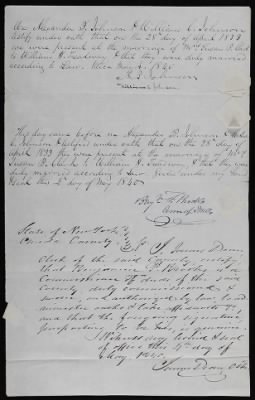 We Alexander D. Johnson & William C. Johnson
testify under oath that on the 28th day of April 1833
we were present at the marriage of Mrs Susan P. Clark
to William H. & that they were duly married
according to Law. Utica May 2. 1840
A. D. Johnson
William C. Johnson
This day came before me Alexander D. Johnson & William
C. Johnson & testified under oath that on the 28th day of
April 1833 they were present at the marriage of Mrs
Susan P. Clark to William H. & that they were
duly married according to Law. Given under my hand
this 2d day of May 1840
Benj. F.
Comr of Deeds
State of New York
Oneida County
I, James Dean,
Clerk of the said County, certify
that Benjamin F. is a
Commissioner of deeds of the said
County duly commissioned &
sworn, and authorized by law to ad-
minister oaths & take affidavits
and that the foregoing signature
purporting to be his, is genuine.
Witness my hand & seal
of office this 4th day of
May, 1840.
James Dean, Clk